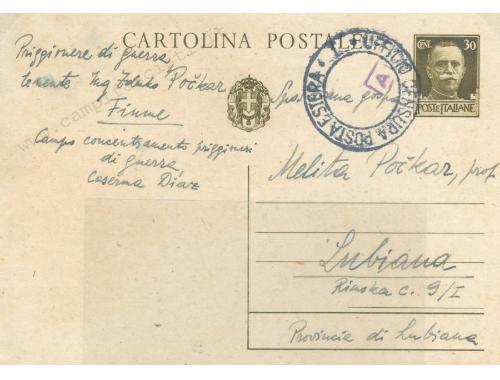 CARTOLINA POSTALE
Priggionere di guerra
tenente Ing Zdenko Počkar
Fiume
Campo concentramento priggioneri
di guerra
Caserma Diaz
UFFICIO CENSURA POSTA ESTERA
A
CENT. 30
POSTE ITALIANE
gospa
Melita Počkar, prof.
Lubiana
Rimska c. 9/I
Provincia di Lubiana